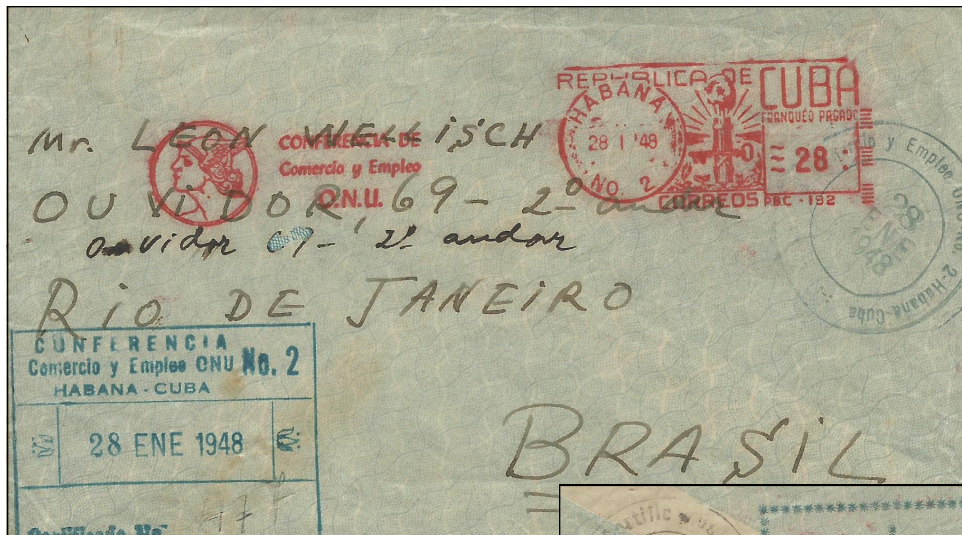 REPUBLICA DE CUBA
FRANQUEO PAGADO
HABANA
28 I '48
NO. 2
28
CORREOS PBC - 192
CONFERENCIA DE
Comercio y Empleo
O.N.U.
Mr. LEON WELLISCH
OUVIDOR, 69 - 2º andar
Ouvidor 69 - 2º andar
RIO DE JANEIRO
BRASIL
y Empleo ONU No. 2-Habana-Cuba
28
ENE
1948
CONFERENCIA
Comercio y Empleo ONU No. 2
HABANA - CUBA
28 ENE 1948
Certificado No.